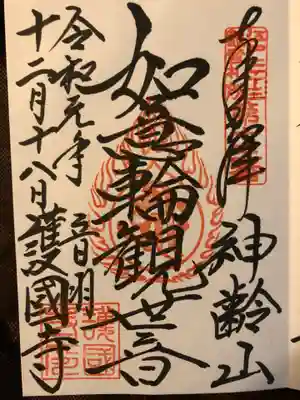 奉拝
神齢山
如意輪観世音
令和元年
十二月十八日
音羽
護國寺